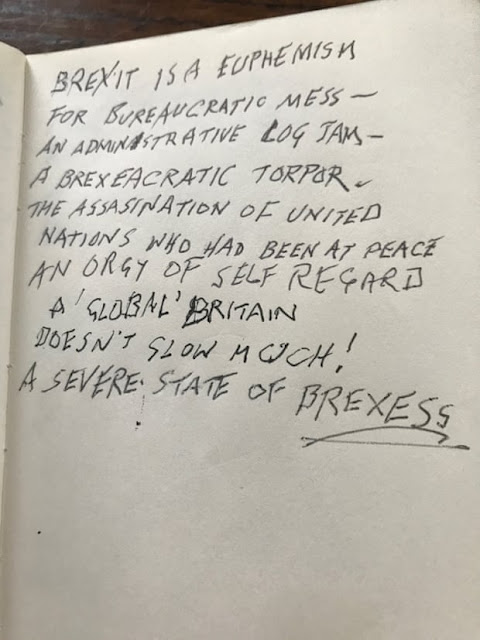 BREXIT IS A EUPHEMISM
FOR BUREAUCRATIC MESS —
AN ADMINISTRATIVE LOG JAM —
A BREXEACRATIC TORPOR.
THE ASSASINATION OF UNITED
NATIONS WHO HAD BEEN AT PEACE
AN ORGY OF SELF REGARD
A 'GLOBAL' BRITAIN
DOESN'T SLOW MUCH!
A SEVERE STATE OF BREXESS